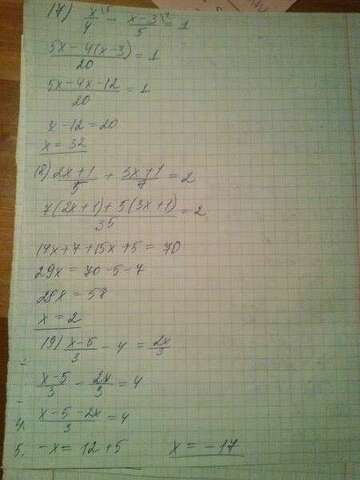 17) x/4 - (x-3)/5 = 1
(5x-4(x-3))/20 = 1
(5x-4x-12)/20 = 1
x-12=20
x = 32
(2x+1)/5 + (3x+1)/7 = 2
(7(2x+1)+5(3x+1))/35 = 2
14x+7+15x+5 = 70
29x = 70-5-7
29x = 58
x = 2
19) (x-5)/3 - 4 = 2x/3
(x-5)/3 - 2x/3 = 4
4. (x-5-2x)/3 = 4
5. -x = 12+5 x = -17